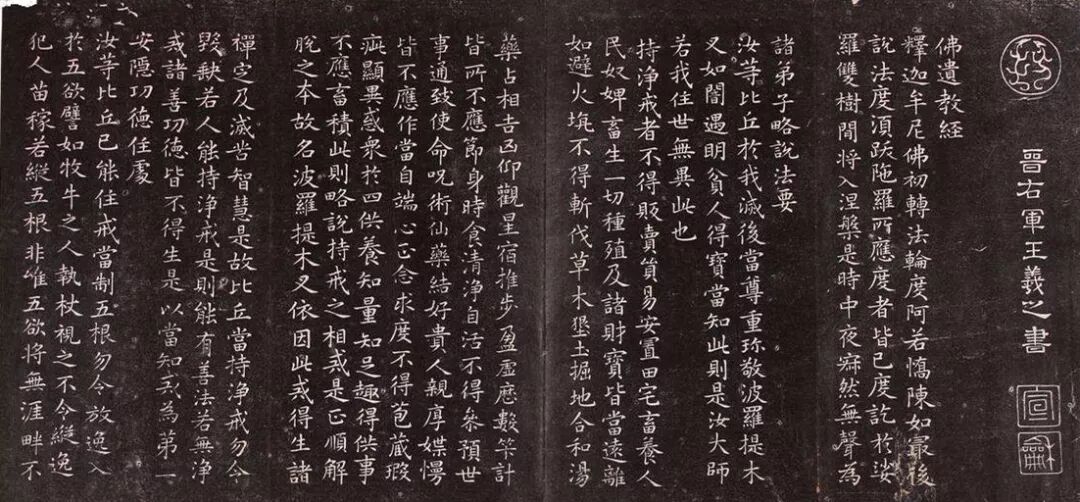 晉右軍王羲之書
宣龢
佛遺教經
釋迦牟尼佛初轉法輪度阿若憍陳如冣後
說法度湏跋陁羅所應度者皆已度訖於娑
羅雙樹間将入涅槃是時中夜寂然無聲為
諸弟子略說法要
汝等比丘於我滅後當尊重珎敬波羅提木
叉如闇遇明貧人得寶當知此則是汝大師
若我住世無異此也
持淨戒者不得販賣貿易安置田宅畜養人
民奴婢畜生一切種殖及諸財寶皆當遠離
如避火坑不得斬伐草木墾土掘地合和湯
藥占相吉凶仰觀星宿推步盈虛歷數筭計
皆所不應節身時食清淨自活不得參預世
事通致使命呪術仙藥結好貴人親厚媟慢
皆不應作當自端心正念求度不得苞藏瑕
疵顯異惑衆於四供養知量知足趣得供事
不應畜積此則略說持戒之相戒是正順解
脫之本故名波羅提木叉依因此戒得生諸
禪定及滅苦智慧是故比丘當持淨戒勿令
毀缺若人能持淨戒是則能有善法若無淨
戒諸善功德皆不得生是以當知戒為第一
安隱功德住處
汝等比丘已能住戒當制五根勿令放逸入
於五欲譬如牧牛之人執杖視之不令縱逸
犯人苗稼若縱五根非唯五欲将無涯畔不